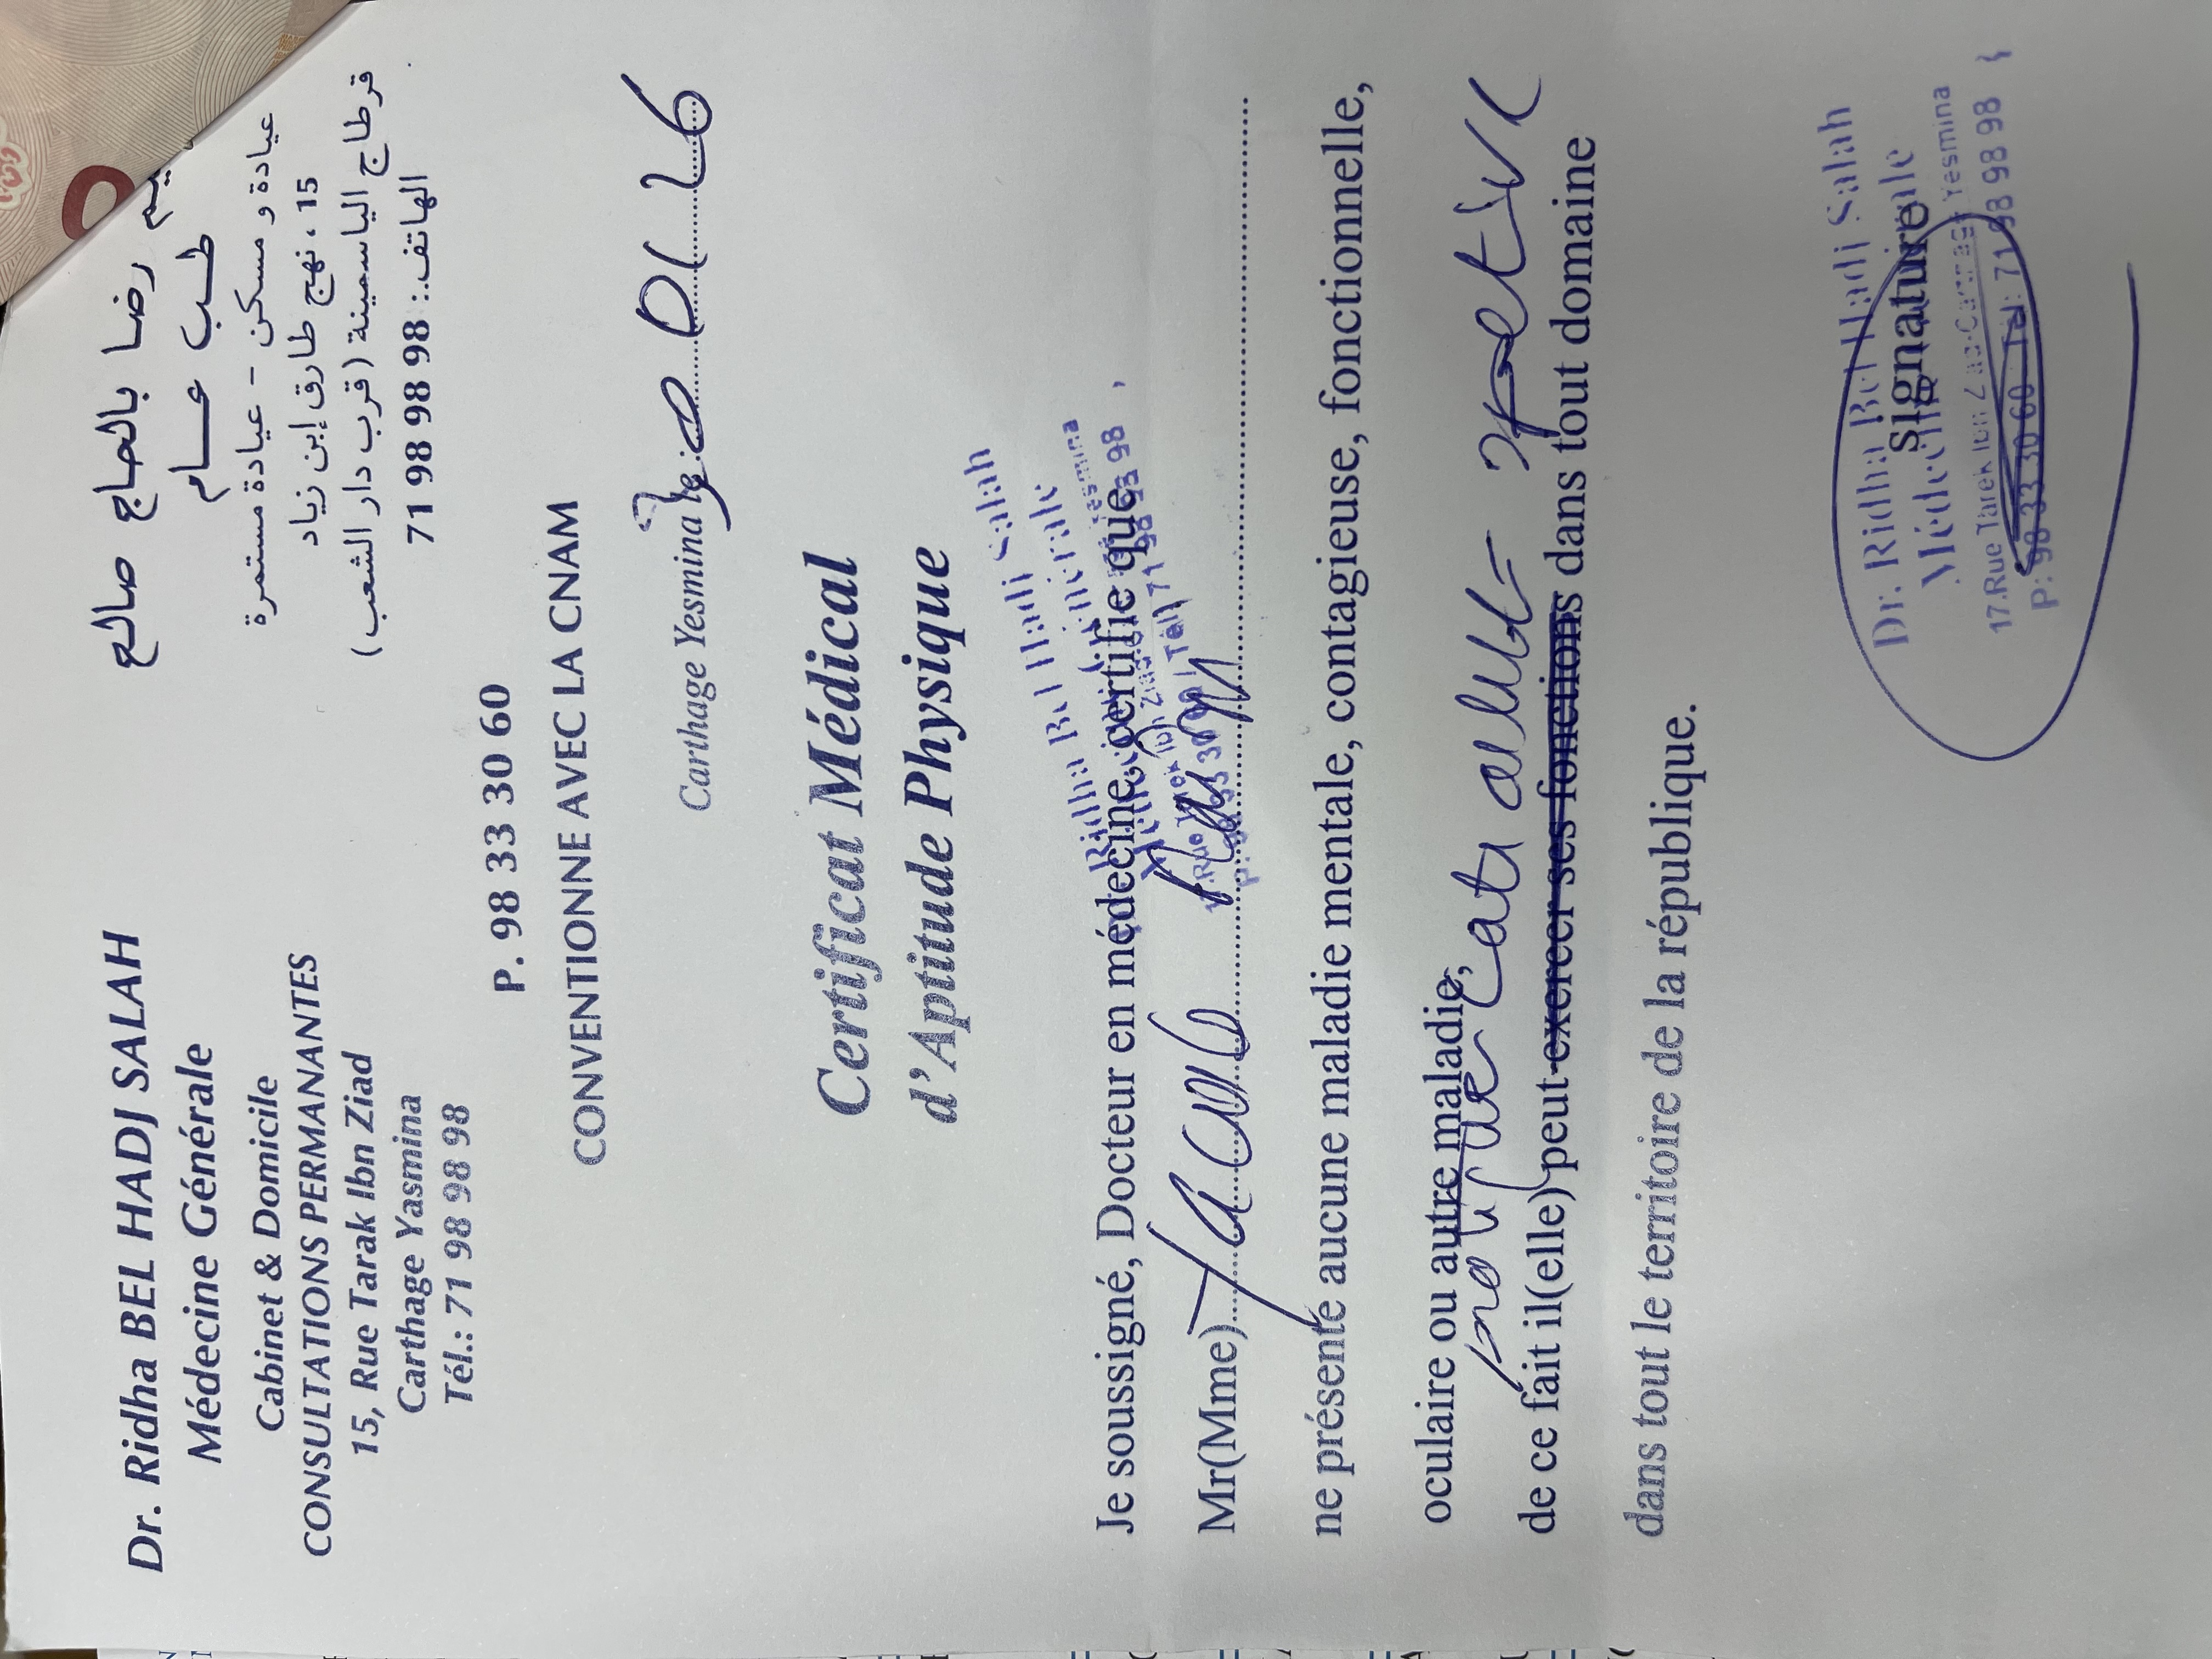 Dr. Ridha BEL HADJ SALAH
Médecine Générale
Cabinet & Domicile
CONSULTATIONS PERMANANTES
15, Rue Tarak Ibn Ziad
Carthage Yasmina
Tél.: 71 98 98 98
رضا بالحاج صالح
طب عام
عيادة و مسكن - عيادة مستمرة
15 ، نهج طارق إبن زياد
قرطاج الياسمينة (قرب دار الشعب)
الهاتف: 98 98 98 71
P. 98 33 30 60
CONVENTIONNE AVEC LA CNAM
Carthage Yesmina le: 01 26
Certificat Médical
d'Aptitude Physique
Je soussigné, Docteur en médecine, certifie que
Mr(Mme)
ne présente aucune maladie mentale, contagieuse, fonctionnelle,
oculaire ou autre maladie,
de ce fait il(elle) peut exercer ses fonctions dans tout domaine
dans tout le territoire de la république.
Signature
Dr. Ridha Bel Hadj Salah
Médecine Générale
17.Rue Tarek Ibn Ziad-Carthage Yesmina
P: 98 33 30 60 Tél: 71 98 98 98